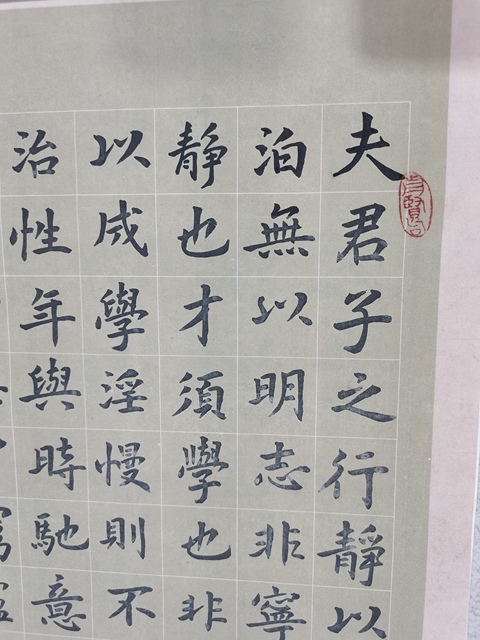 夫君子之行靜以
泊無以明志非寧
靜也才須學也非
以成學淫慢則不
治性年與時馳意